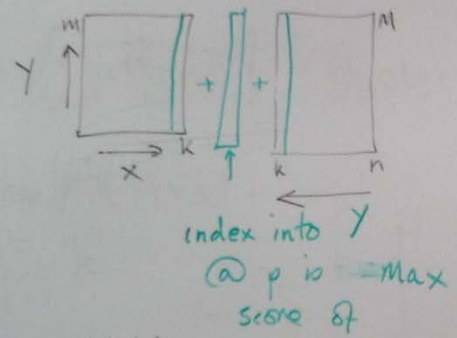 m
M
Y
+ +
k
k
n
X
Y
index into
@ p is Max
score of